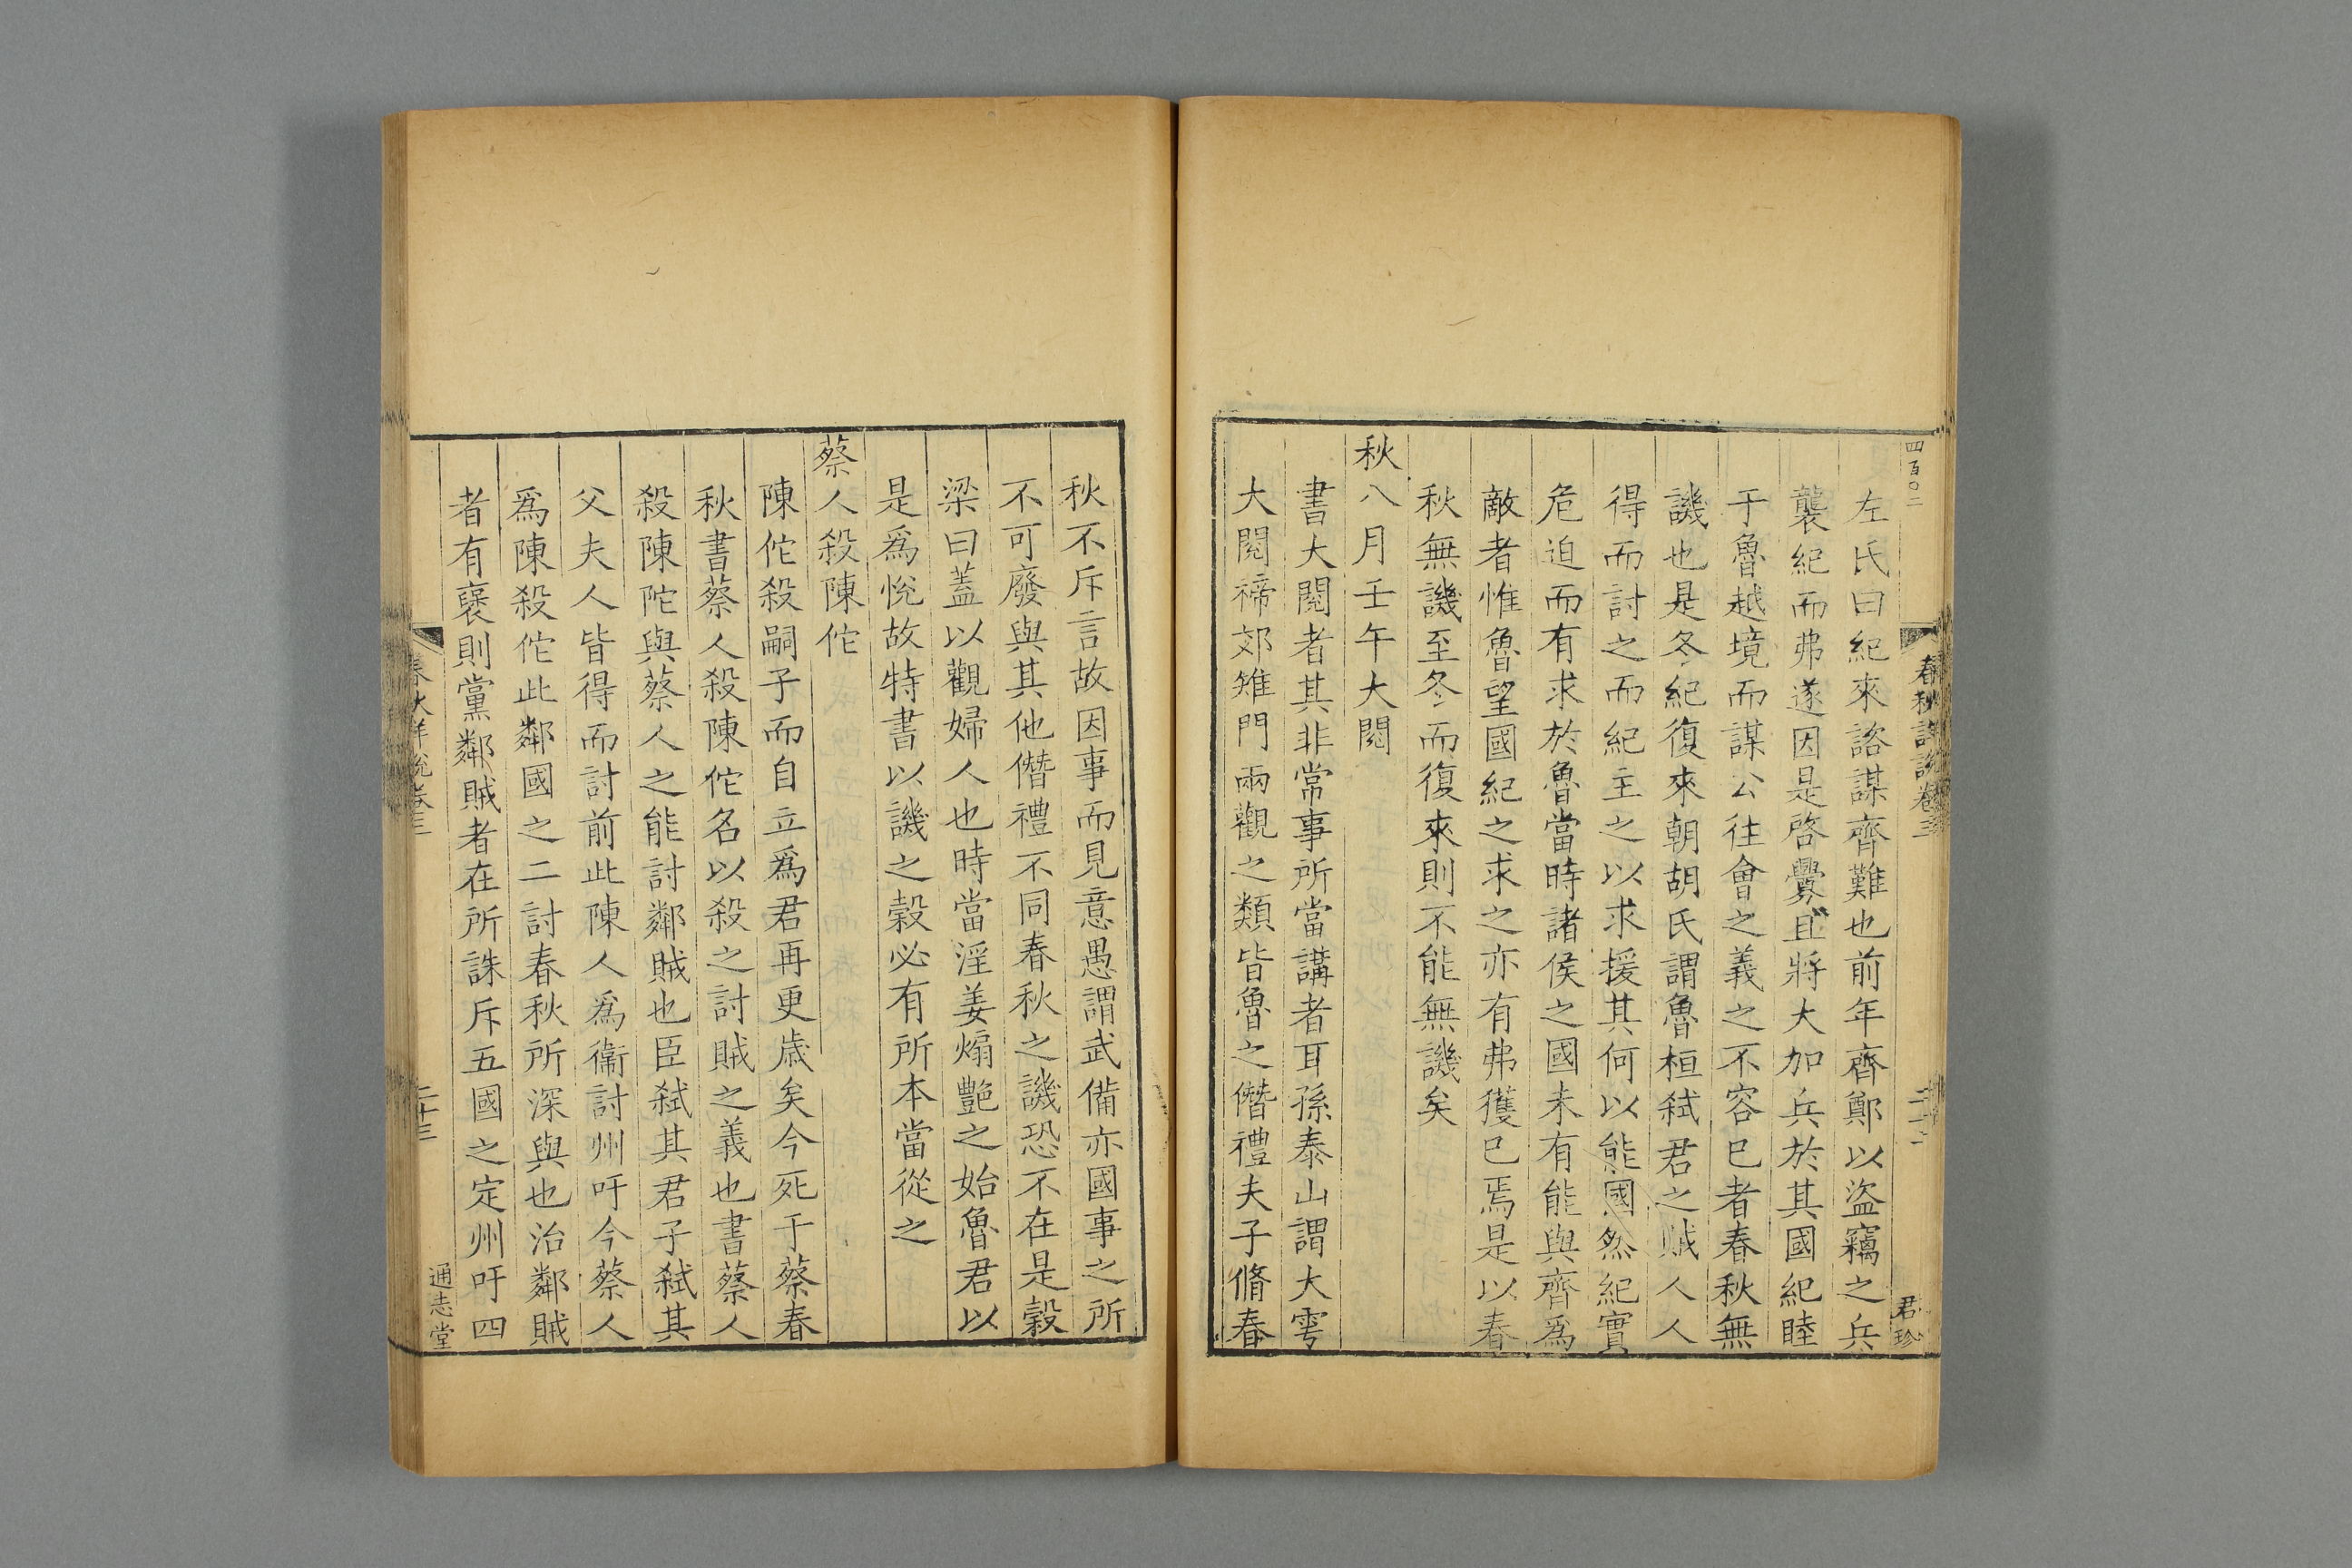 四百〇二
春秋詳說卷三
二十二
君珍
左氏曰紀來諮謀齊難也前年齊鄭以盜竊之兵
襲紀而弗遂因是啓釁且將大加兵於其國紀睦
于魯越境而謀公往會之義之不容已者春秋無
譏也是冬紀復來朝胡氏謂魯桓弒君之賊人人
得而討之而紀主之以求援其何以能國然紀實
危迫而有求於魯當時諸侯之國未有能與齊爲
敵者惟魯望國紀之求之亦有弗獲已焉是以春
秋無譏至冬而復來則不能無譏矣
秋八月壬午大閱
書大閱者其非常事所當講者耳孫泰山謂大雩
大閱禘郊雉門兩觀之類皆魯之僭禮夫子脩春
秋不斥言故因事而見意愚謂武備亦國事之所
不可廢與其他僭禮不同春秋之譏恐不在是穀
梁曰蓋以觀婦人也時當淫姜煽艷之始魯君以
是爲悅故特書以譏之穀必有所本當從之
蔡人殺陳佗
陳佗殺嗣子而自立爲君再更歲矣今死于蔡春
秋書蔡人殺陳佗名以殺之討賊之義也書蔡人
殺陳陀與蔡人之能討鄰賊也臣弒其君子弒其
父夫人皆得而討前此陳人爲衞討州吁今蔡人
爲陳殺佗此鄰國之二討春秋所深與也治鄰賊
者有襃則黨鄰賊者在所誅斥五國之定州吁四
春秋詳說卷三
二十三
通志堂